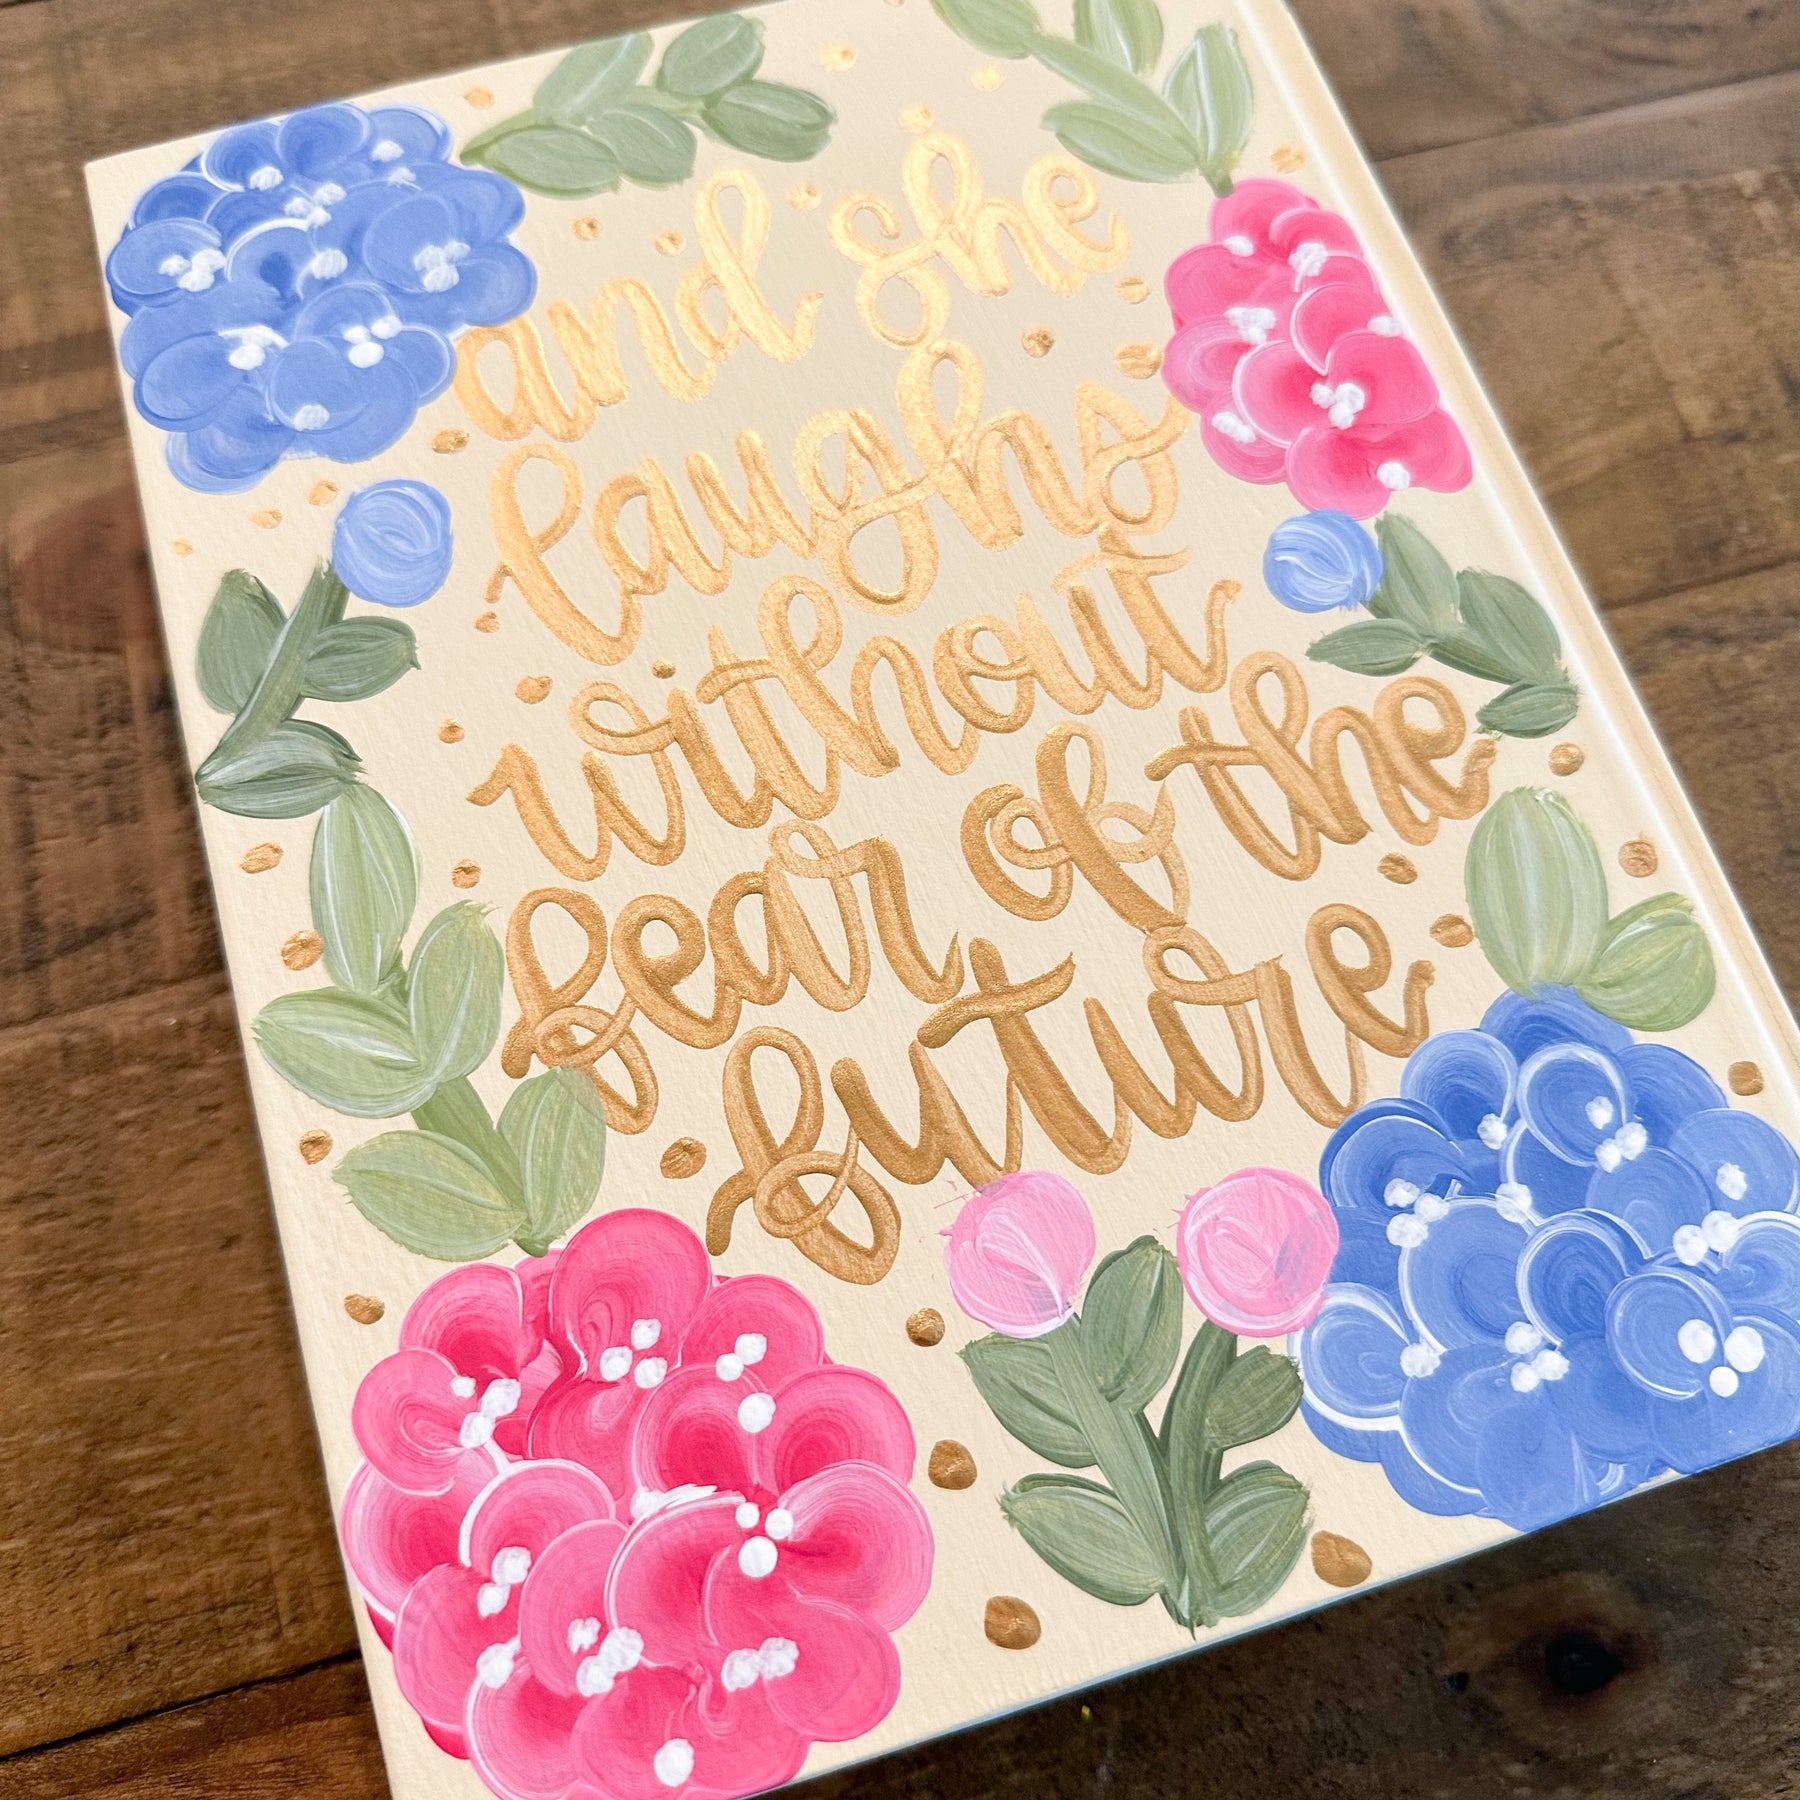 and she
laughs
without
fear of the
future